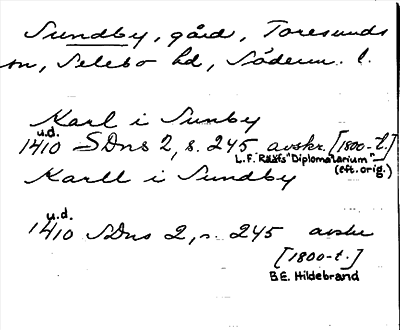 Sundby, gård, Toresunds
sn, Selebo hd, Söderm. l.
Karl i Sunby
u.d.
1410 SDns 2, s. 245 avskr. [1800-t.]
L.F. Rääfs "Diplomatarium"
(eft. orig.)
Karll i Sundby
u.d.
1410 SDns 2, s. 245 avskr
[1800-t.]
B.E. Hildebrand